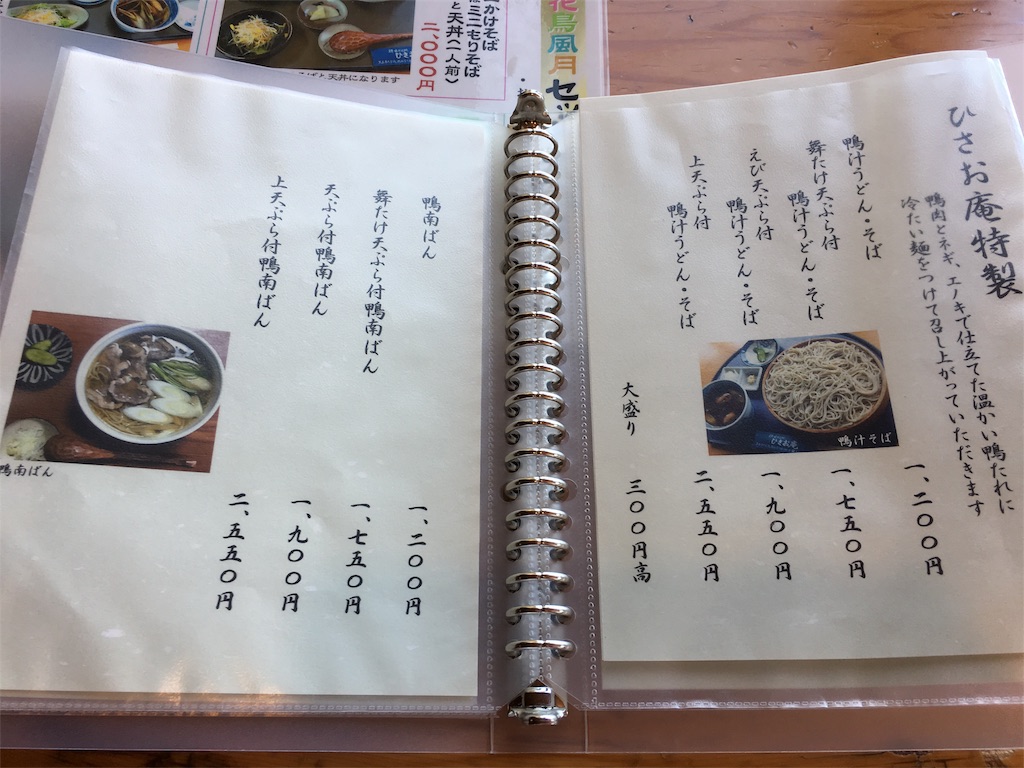 かけそば
ミニもりそば
と天丼(一人前)
二、000円
そばと天丼になります
花鳥風月セッ
ひさお庵特製
鴨肉とネギ、エノキで仕立てた温かい鴨たれに
冷たい麺をつけて召し上がっていただきます
鴨汁うどん・そば
一、二〇〇円
舞たけ天ぷら付
鴨汁うどん・そば
一、七五〇円
えび天ぷら付
鴨汁うどん・そば
一、九〇〇円
上天ぷら付
鴨汁うどん・そば
二、五五〇円
大盛り
三〇〇円高
ひさお庵
鴨汁そば
鴨南ばん
一、二〇〇円
舞たけ天ぷら付鴨南ばん
一、七五〇円
天ぷら付鴨南ばん
一、九〇〇円
上天ぷら付鴨南ばん
二、五五〇円
鴨南ばん